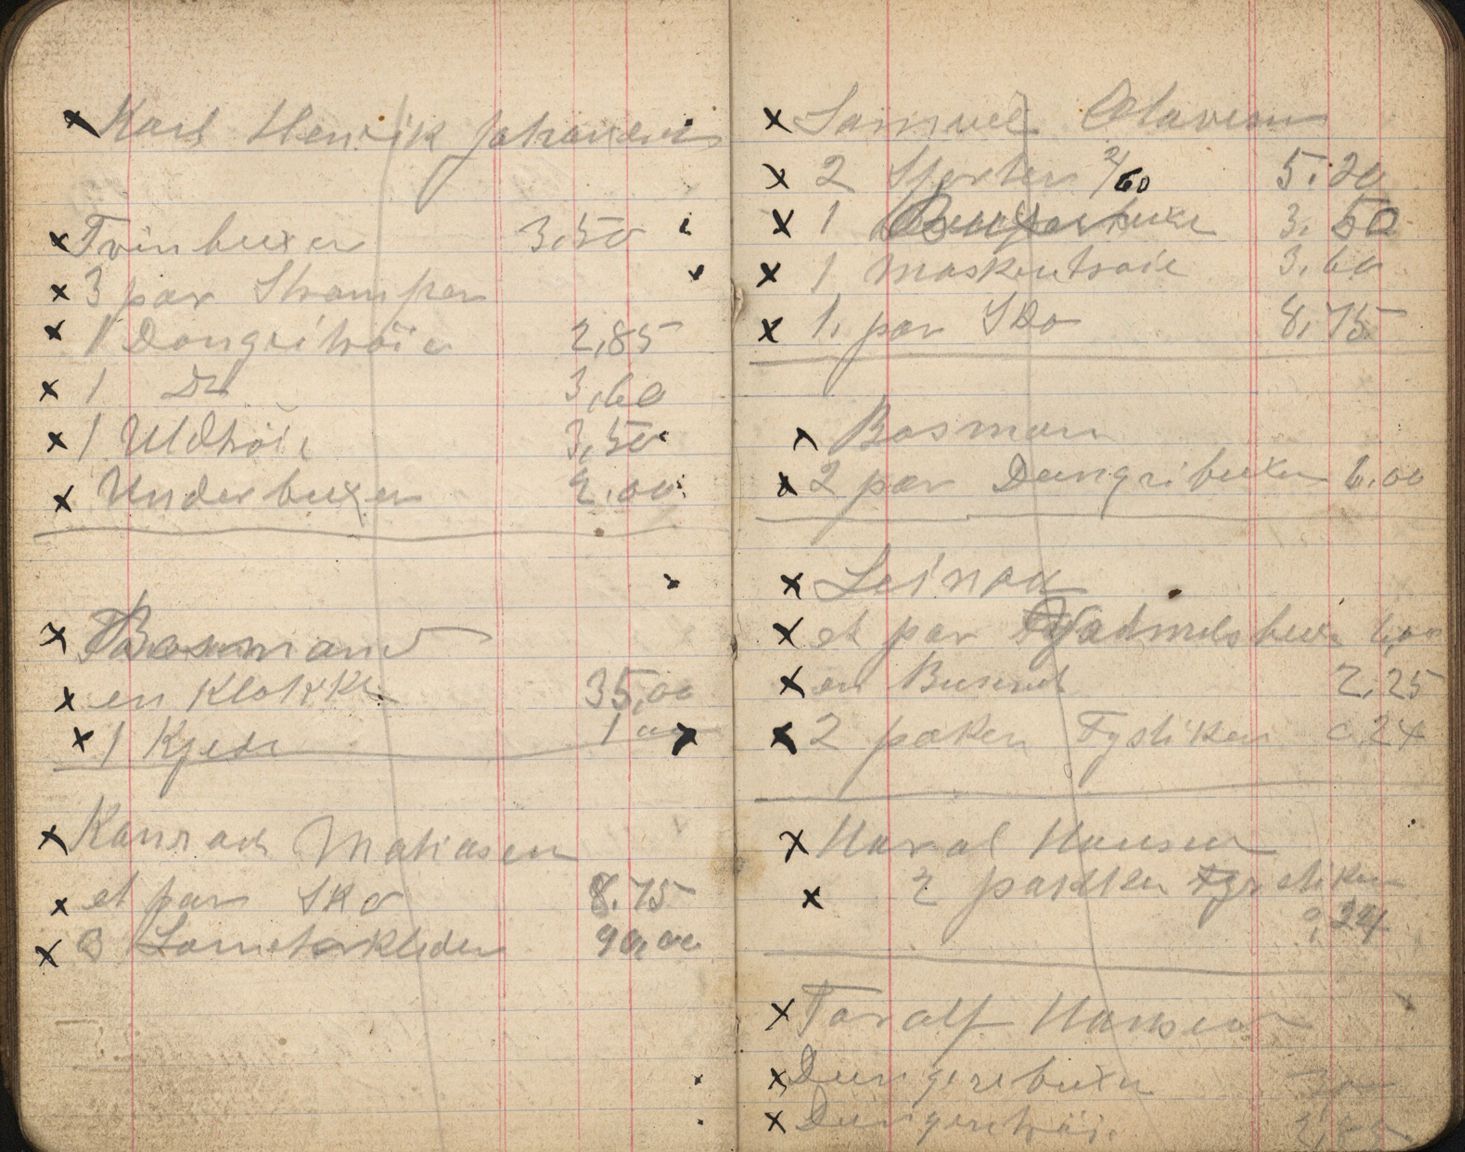 x Karl Henrik Johansen
x Tvinbuxer 3,50
x 3 par Strømper
x 1 Dongeritröie 2,85
x 1 Do 3,60
x 1 Uldtröie 3,50
x Underbuxer 2,00
x Bosmand
x en Klokke 35,00
x 1 Kjede 1 00
x Konrad Matiasen
x et par Sko 8.75
x 3 Lometørkleder
x Samuel Olavsen
x 2 Sjorter 2/60 5.20
x 1 3,50
x 1 Maskentrøie 3,60
x 1. par Sko 8,75
x Bosman
x 2 par Dungribuxer 6,00
x
x et par Vadmelsbuxe 6,00
x en Buserul 2,25
x 2 paker Fystiker 0,24
x Haral Hansen
x 2 pakker Fyrstiker
0,24
x Toralf Hansen
x Dungeribuxer
x Dungeritröie 2,85